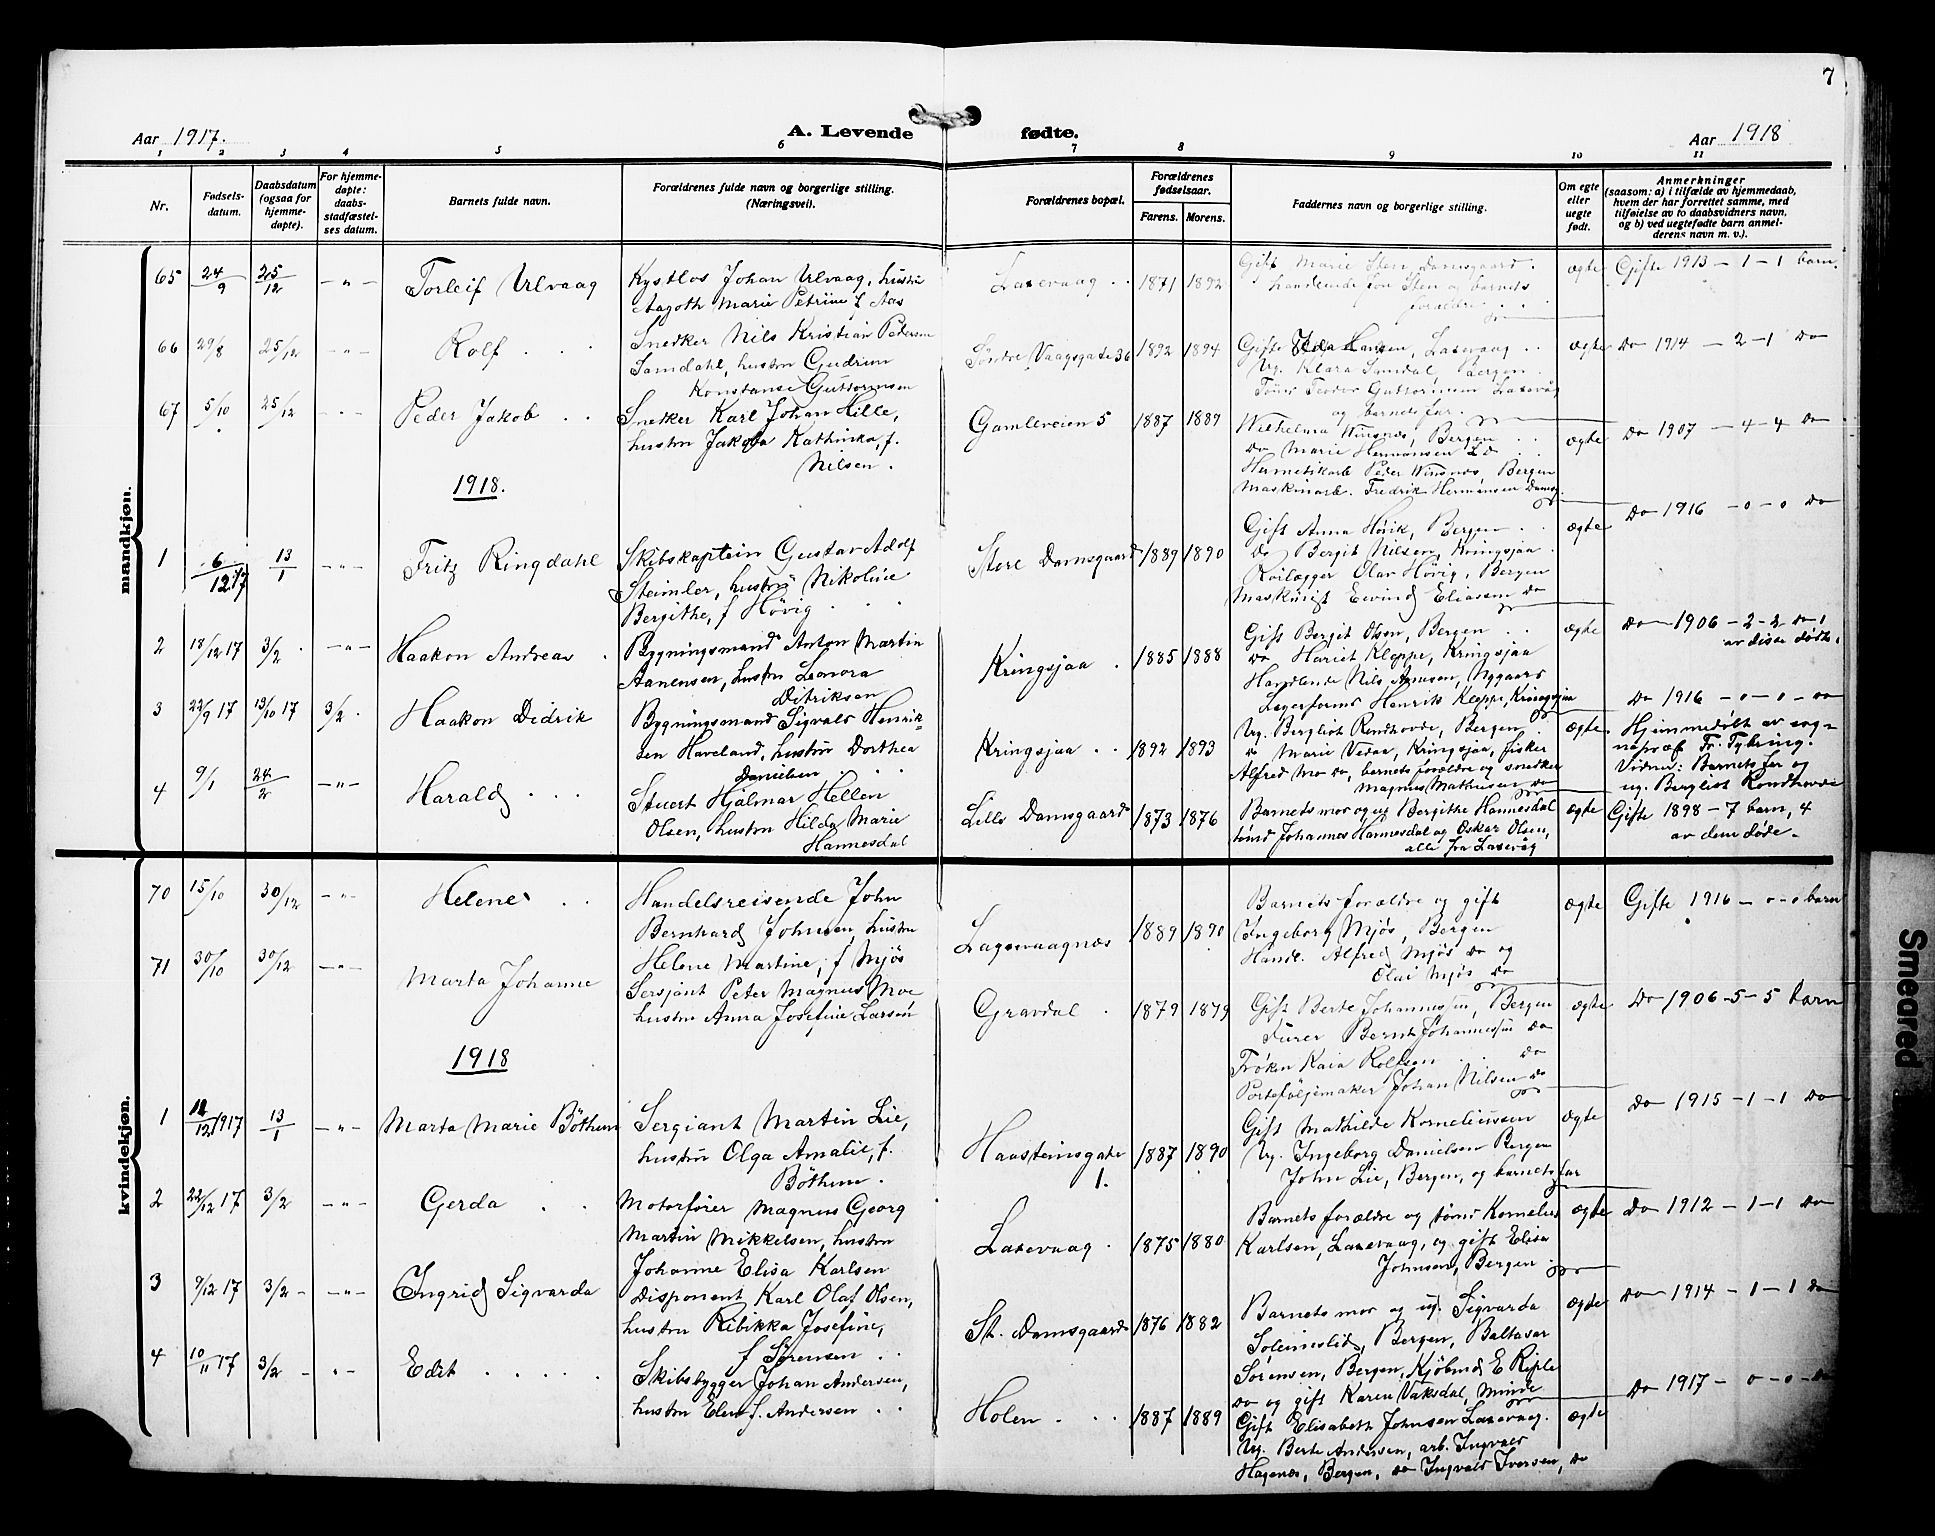 7
Aar 1917.
A. Levende fødte.
Aar 1918
1 2 3 4 5 6 7 8 9 10 11
Nr.
Fødsels-
datum.
Daabsdatum
(ogsaa for
hjemme-
døpte).
For hjemme-
døpte:
daabs-
stadfæstel-
ses datum.
Barnets fulde navn.
Forældrenes fulde navn og borgerlige stilling.
(Næringsvei).
Forældrenes bopæl.
Forældrenes
fødselsaar.
Farens. Morens.
Faddernes navn og borgerlige stilling.
Om egte
eller
uegte
født.
Anmerkninger
(saasom: a) i tilfælde av hjemmedaab,
hvem der har forrettet samme, med
tilføielse av to daabsvidners navn,
og b) ved uegtefødte barn anmel-
derens navn m. v.).
mandkjøn.
65 24/9 25/12 -"- Torleif Ulvaag
Kystlos Johan Ulvaag, hustru
Aagoth Marie Petrine f. Aas
Laxevaag 1871 1892
Gift Marie Sten, Damsgaard.
Handlende Jon Sten og barnets
forældre
ægte Gifte 1913 - 1 - 1 barn.
66 29/8 25/12 -"- Rolf
Snedker Nils Kristian Pedersen
Samdahl, hustru Gudrun
Konstanse Guttormsen
Søndre Vaagsgate 36 1892 1894
Gifte Hansen, Laxevaag
Ug. Klara Samdal, Bergen
Teodor Guttormsen Laxevåg
og barnets far.
ægte Do 1914 - 2 - 1 Do
67 5/10 25/12 -"- Peder Jakob
Snedker Karl Johan Hille,
hustru Jakoba Kathinka, f.
Nilsen.
Gamleveien 5 1887 1889
Wilhelmina Winsnes, Bergen
Do Marie Hermansen Do
Hermetikarb Peder Winsnes Bergen
Maskinarb. Fredrik Hermansen Damsg.
ægte Do 1907 - 4 - 4 Do
1918.
1 6/12 17 13/1 -"- Fritz Ringdahl
Skibskaptein Gustav Adolf
Steimler, hustru Nikoline
Bergithe, f Hövig
Store Damsgaard 1889 1890
Gift Anna Bergen
Do Bergit Nilsen, Kringsjaa
Olav Hövig, Bergen
Eivind Eliassen Do
ægte Do 1916 - 0 - 0 Do
2 18/12 17 3/2 -"- Haakon Andreas
Bygningsmand Anton Martin
Aanensen, hustru Leonora
Ditriksen
Kringsjaa 1885 1888
Gift Bergit Olsen, Bergen
Do Hariet Kleppe, Kringsjaa
Handlende Nils Nygaard
Lagerformd Henrik Kleppe, Kringsjaa
ægte Do 1906 - 2 - 2 Do,
av disse døde.
3 22/9 17 13/10 17 3/2 Haakon Didrik
Bygningsmand Sigvald Henrik-
sen Haveland, hustru Dorthea
Danielsen
Kringsjaa 1892 1893
Ug. Bergliot Rondhovde, Bergen
Do Marie Vedaa, Kringsjaa, fisker
Alfred Mo Do, barnets forældre og snedker
Magnus Mathiesen Do
ægte Do 1916 - 0 - 0 - Do
Hjemmedøbt av sog-
nepræst Fr. Tybring.
Vidner: Barnets far og
ug. Bergliot Rondhovde
4 9/1 24/2 -"- Harald
Stuert Hjalmar Hellen
Olsen, hustru Hilda Marie
Hannesdal
Lille Damsgaard 1873 1876
Barnets mor og ug Bergithe Hannesdal
tømd Johannes Hannesdal og Oskar Olsen,
alle fra Laxevåg
ægte Gifte 1898 - 7 barn, 4
av dem døde.
kvindekjøn.
70 15/10 30/12 -"- Helene
Handelsreisende John
Bernhard Johnsen, hustru
Helene Martine, f Mjøs
Laxevaagnes 1889 1890
Barnets forældre og gift
Ingeborg Mjøs, Bergen
Handl. Alfred Mjøs Do og
Olai Mjøs Do
ægte Gifte 1916 - 0 - 0 barn
71 30/10 30/12 -"- Marta Johanne
Sersjant Peter Magnus Moe
hustru Anna Josefine Larsen
Gravdal 1879 1879
Gift Berte Johannessen, Bergen
Furer Bernt Johannessen Do
Frøken Kaia Rolfsen Do
Porteføljemaker Johan Nilsen Do
ægte Do 1906 - 5 - 5 barn
1918
1 11/12 1917 13/1 -"- Marta Marie Böthun
Sergiant Martin Lie,
hustru Olga Amalie, f.
Böthun.
Haasteinsgate
1. 1887 1890
Gift Mathilde Korneliussen
Ug. Ingeborg Danielsen Bergen
John Lie, Bergen, og barnets far
ægte Do 1915 - 1 - 1 Do
2 22/12 17 3/2 -"- Gerda
Motorfører Magnus Georg
Martin Mikkelsen, hustru
Johanne Elisa Karlsen
Laxevaag 1875 1880
Barnets forældre og tømd Kornelius
Karlsen, Laxevaag, og gift Elisa
Johnsen, Bergen
ægte Do 1912 - 1 - 1 Do
3 9/12 17 3/2 -"- Ingrid Sigvarda
Disponent Karl Olaf Olsen,
hustru Ribikka Josefine,
f Sørensen
St. Damsgaard 1876 1882
Barnets mor og ug. Sigvarda
Soleimslid, Bergen, Baltasar
Sørensen, Bergen, Kjøbmd E Riple
Do og gift Karen Vaksdal, Minde
ægte Do 1914 - 1 - 1 Do
4 10/11 17 3/2 -"- Edit
Skibsbygger Johan Andersen,
hustru Elen f. Andersen
Holen 1887 1889
Gift Elisabeth Johnsen Laxevaag.
Ug. Berte Andersen, arb. Ingvald
Hagenes, Bergen, Do Ingvald Iversen, Do
ægte Do 1917 - 0 - 0 - Do
Smeared